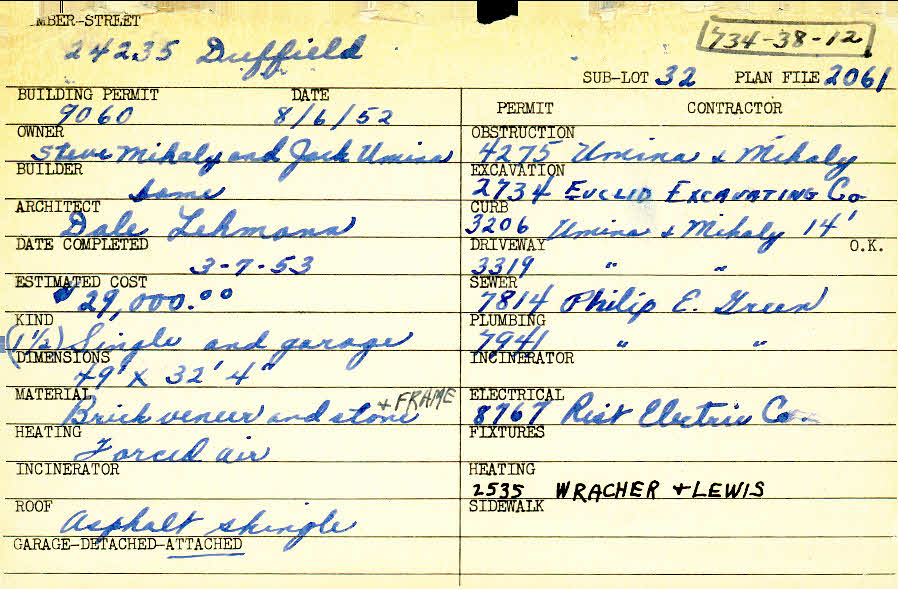 MBER-STREET
24235 Duffield
734-38-12
SUB-LOT 32 PLAN FILE 2061
BUILDING PERMIT DATE
9060 8/6/52
OWNER
Steve Mihaly and Jack Umina
BUILDER
Same
ARCHITECT
Dale Lehmann
DATE COMPLETED
3-7-53
ESTIMATED COST
$29,000.00
KIND
(1 1/2) Single and garage
DIMENSIONS
49' X 32' 4"
MATERIAL
Brick veneer and stone + FRAME
HEATING
Forced air
INCINERATOR
ROOF
Asphalt shingle
GARAGE-DETACHED-ATTACHED
PERMIT CONTRACTOR
OBSTRUCTION
4275 Umina & Mihaly
EXCAVATION
2734 EUCLID EXCAVATING Co
CURB
3206 Umina & Mihaly 14'
DRIVEWAY O.K.
3319 " "
SEWER
7814 Philip E. Green
PLUMBING
7941 " "
INCINERATOR
ELECTRICAL
8767 Rist Electric Co.
FIXTURES
HEATING
2535 WRACHER + LEWIS
SIDEWALK